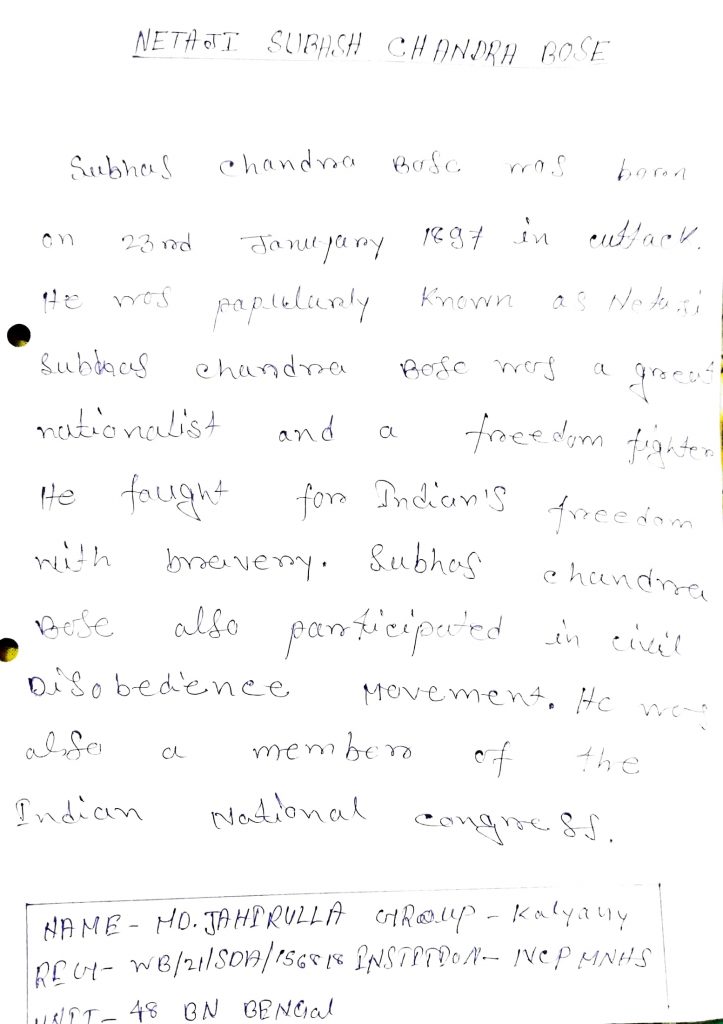 NETAJI SUBASH CHANDRA BOSE
Subhas chandra Bose was born
on 23rd January 1897 in cuttack.
He was papularly Known as Netaji
Subhas chandra Bose was a great
nationalist and a freedom fighter
He faught for Indian's freedom
with bravery. Subhas chandra
Bose also participated in civil
Disobedience Movement. He was
also a member of the
Indian National congress.
NAME - MD. JAHIRULLA GROUP - Kalyany
REGI - WB/21/SDA/156818 INSTITDON - NCPMNHS
UNIT - 48 BN BENGal